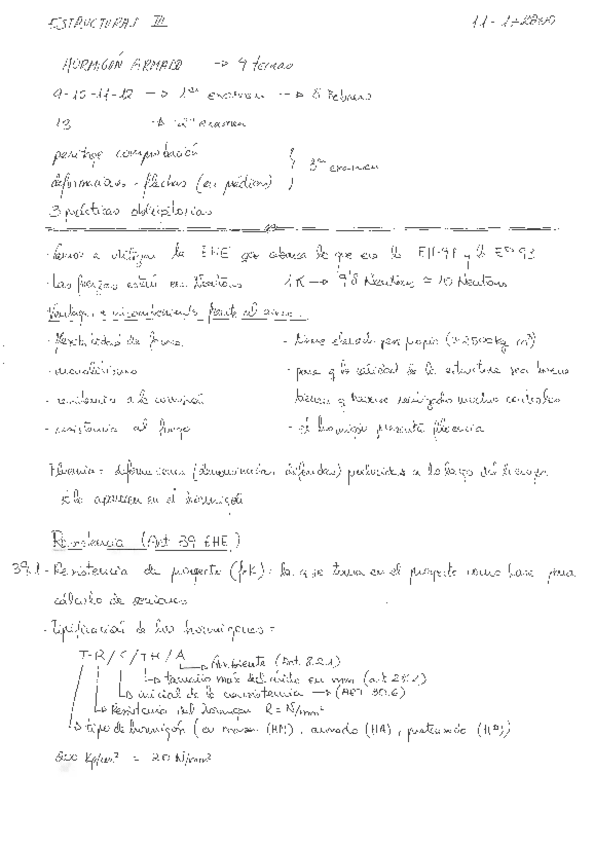 ESTRUCTURAS III
HORMIGÓN ARMADO -> 4 temas
9-10-11-12 -> 1er examen -> 8 Febrero
13 -> examen
peritaje comprobación
deformaciones - flechas (en pórticos) } 3er examen
3 prácticas obligatorias
- Vamos a utilizar la EHE que abarca lo que era la EH-91 y la EP-93
- Las fuerzas están en Newtons 1 K -> 9'8 Newtons ≃ 10 Newtons
Ventajas e inconvenientes frente al acero.
- de forma - Tiene elevado peso propio (≃2500 kg/m³)
- monolitismo - para q la calidad de la estructura sea buena
- resistencia a la corrosión tienen q haberse realizado muchos controles
- resistencia al fuego - el hormigón presenta fluencia
Fluencia = deformaciones (denominación diferidas) producidas a lo largo del tiempo
sólo aparecen en el hormigón
Resistencia (Art 39 EHE)
39.1 - Resistencia de proyecto (fcK): la q se toma en el proyecto como base para
cálculo de secciones
- Tipificación de los hormigones =
T-R/C/TM/A
Ambiente (Art. 8.2.1)
tamaño máx del árido en mm
inicial de la consistencia -> (ART 30.6)
Resistencia del hormigón R = N/mm²
tipo de hormigón (en masa (HM), armado (HA), pretensado (HP))
200 Kp/cm² = 20 N/mm²